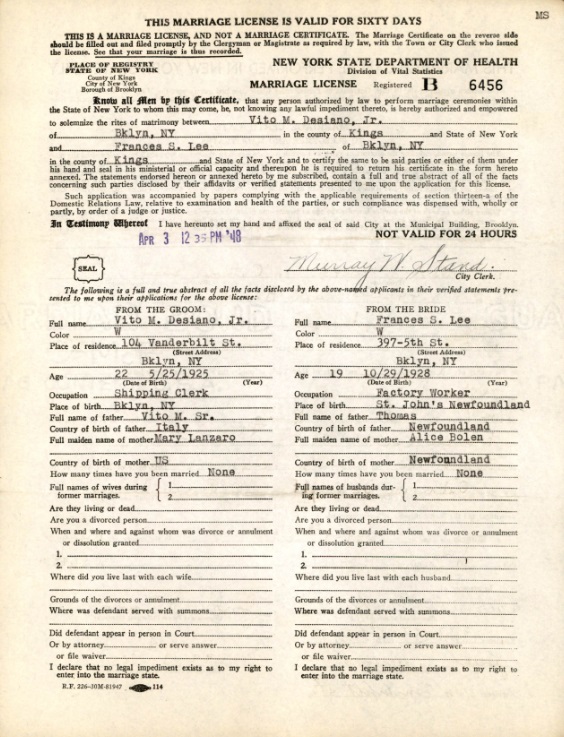 MS
THIS MARRIAGE LICENSE IS VALID FOR SIXTY DAYS
THIS IS A MARRIAGE LICENSE, AND NOT A MARRIAGE CERTIFICATE. The Marriage Certificate on the reverse side
should be filled out and filed promptly by the Clergyman or Magistrate as required by law, with the Town or City Clerk who issued
the license. See that your marriage is thus recorded.
PLACE OF REGISTRY
STATE OF NEW YORK
County of Kings
City of New York
Borough of Brooklyn
NEW YORK STATE DEPARTMENT OF HEALTH
Division of Vital Statistics
MARRIAGE LICENSE Registered B 6456
Know all Men by this Certificate, that any person authorized by law to perform marriage ceremonies within
the State of New York to whom this may come, he, not knowing any lawful impediment thereto, is hereby authorized and empowered
to solemnize the rites of matrimony between Vito M. Desiano, Jr.
of Bklyn, NY in the county of Kings and State of New York
and Frances S. Lee of Bklyn, NY
in the county of Kings and State of New York and to certify the same to be said parties or either of them under
his hand and seal in his ministerial or official capacity and thereupon he is required to return his certificate in the form hereto
annexed. The statements endorsed hereon or annexed hereto by me subscribed, contain a full and true abstract of all of the facts
concerning such parties disclosed by their affidavits or verified statements presented to me upon the application for this license.
Such application was accompanied by papers complying with the applicable requirements of section thirteen-a of the
Domestic Relations Law, relative to examination and health of the parties, or such compliance was dispensed with, wholly or
partly, by order of a judge or justice.
In Testimony Whereof I have hereunto set my hand and affixed the seal of said City at the Municipal Building, Brooklyn.
APR 3 12 35 PM '48
NOT VALID FOR 24 HOURS
SEAL
Murray W. Stand.
City Clerk.
The following is a full and true abstract of all the facts disclosed by the above-named applicants in their verified statements pre-
sented to me upon their applications for the above license:
FROM THE GROOM:
Full name Vito M. Desiano, Jr.
Color W
Place of residence 104 Vanderbilt St.
(Street Address)
Bklyn, NY
Age 22 5/25/1925
(Date of Birth) (Year)
Occupation Shipping Clerk
Place of birth Bklyn, NY
Full name of father Vito M. Sr.
Country of birth of father Italy
Full maiden name of mother Mary Lanzaro
Country of birth of mother US
How many times have you been married None
Full names of wives during
former marriages.
1
2
Are they living or dead
Are you a divorced person
When and where and against whom was divorce or annulment
or dissolution granted
1.
2.
Where did you live last with each wife
Grounds of the divorces or annulment
Where was defendant served with summons
Did defendant appear in person in Court
Or by attorney or serve answer
or file waiver
I declare that no legal impediment exists as to my right to
enter into the marriage state.
R.F. 226-30M-81947 114
FROM THE BRIDE
Full name Frances S. Lee
Color W
Place of residence 397-5th St.
(Street Address)
Bklyn, NY
Age 19 10/29/1928
(Date of Birth) (Year)
Occupation Factory Worker
Place of birth St. John's Newfoundland
Full name of father Thomas
Country of birth of father Newfoundland
Full maiden name of mother Alice Bolen
Country of birth of mother Newfoundland
How many times have you been married None
Full names of husbands dur-
ing former marriages.
1
2
Are they living or dead
Are you a divorced person
When and where and against whom was divorce or annulment
or dissolution granted
1.
2.
Where did you live last with each husband
Grounds of the divorces or annulment
Where was defendant served with summons
Did defendant appear in person in Court
Or by attorney or serve answer
or file waiver
I declare that no legal impediment exists as to my right to
enter into the marriage state.